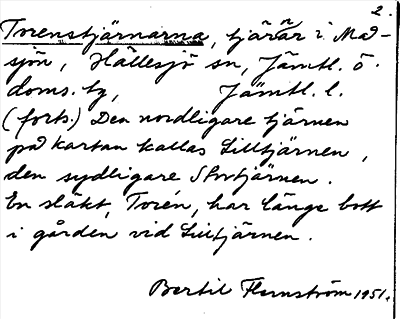 2.
Torenstjärnarna, tjärnar i Mad-
sjön, Hällesjö sn, Jämtl. ö.
doms. hg, Jämtl. l.
(forts.) Den nordligare tjärnen
på kartan kallas Lilltjärnen,
den sydligare Stortjärnen.
En släkt, Torén, har länge bott
i gården vid Lilltjärnen.
Bertil Flemström 1951.